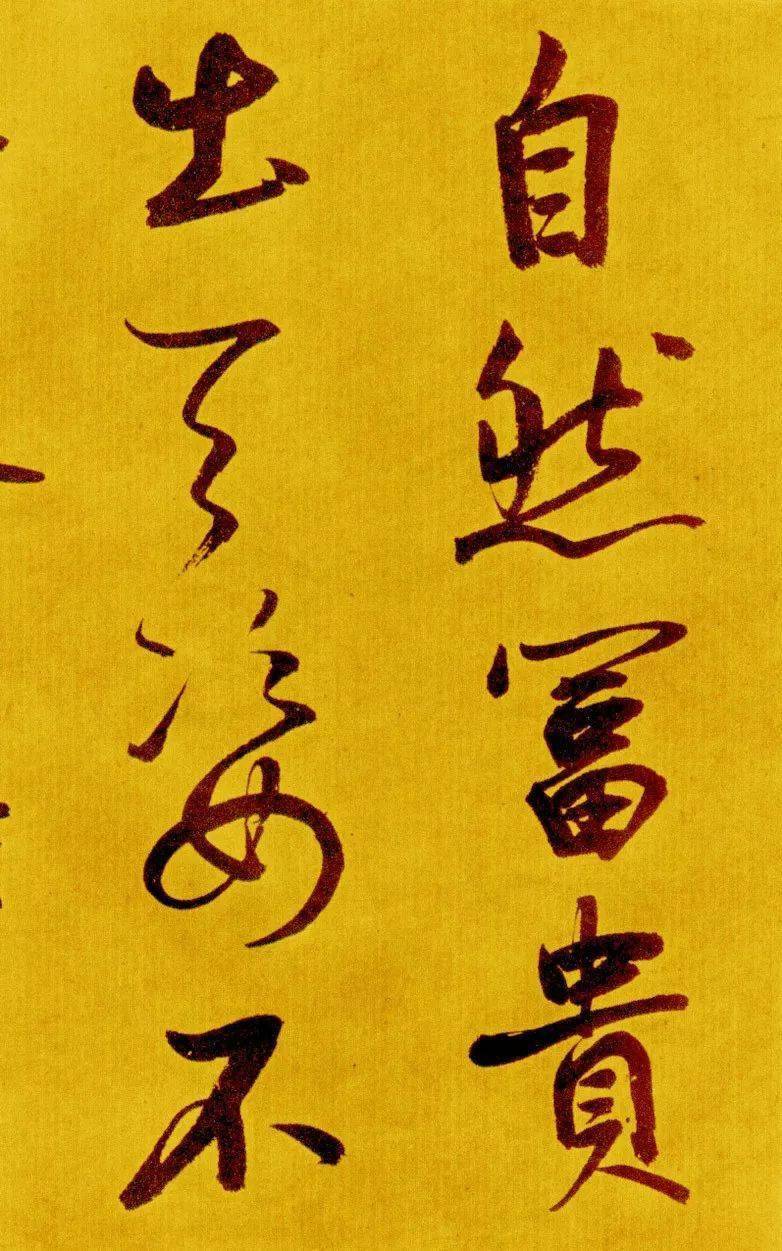 自然冨貴
出天姿不